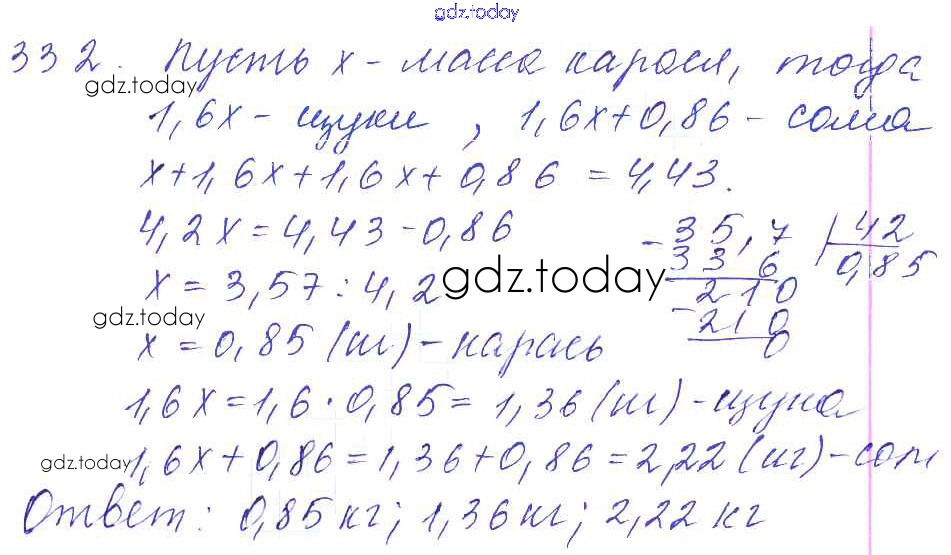 gdz.today
332. Пусть х - масса карася, тогда
gdz.today
1,6х - щуки, 1,6х+0,86 - сома
х+1,6х+1,6х+0,86 = 4,43.
4,2х = 4,43 - 0,86
- 35,7 | 42
33 6 0,85
х = 3,57 : 4,2
gdz.today
- 210
210
0
gdz.today
х = 0,85 (кг) - карась
1,6х = 1,6 · 0,85 = 1,36 (кг) - щука
gdz.today
1,6х + 0,86 = 1,36 + 0,86 = 2,22 (кг) - сом
Ответ: 0,85 кг; 1,36 кг; 2,22 кг